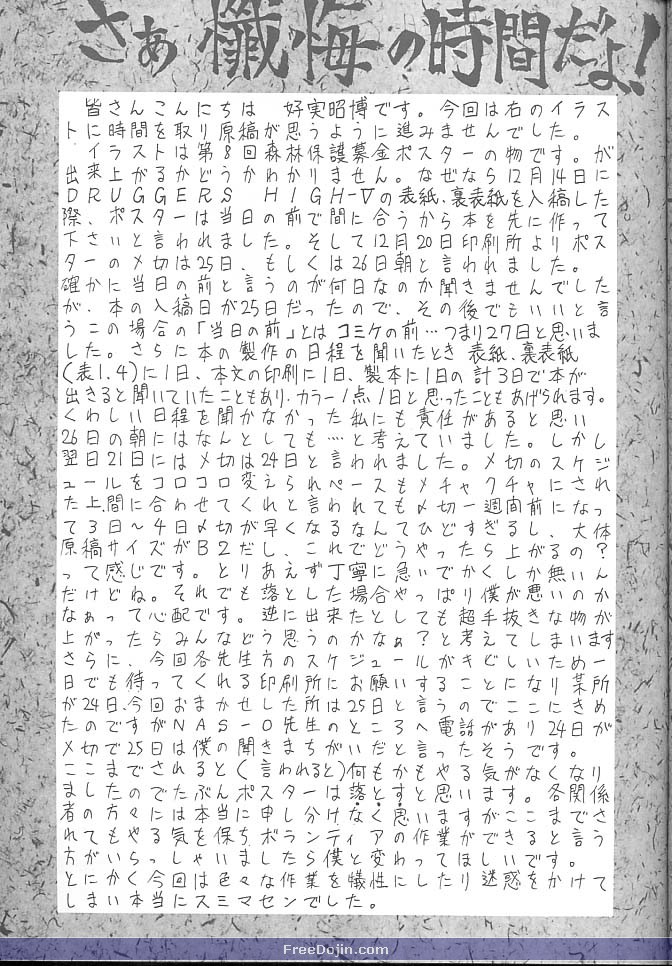 さあ懺悔の時間だよ!
皆さんこんにちは 好実昭博です。今回は右のイラス
トに時間を取り原稿が思うように進みませんでした。
イラストは第8回森林保護募金ポスターの物です。が
出来上がるかどうかわかりません。なぜなら12月14日に
DRUGGERS HIGH-Vの表紙、裏表紙を入稿した
際、ポスターは当日の前で間に合うから本を先に作って
下さいと言われました。そして12月20日印刷所よりポス
ターの〆切は25日、もしくは26日朝と言われました。
確かに当日の前と言うのが何日なのか聞きませんでした
が、本の入稿日が25日だったので、その後でもいいと言
うこの場合の「当日の前」とはコミケの前…つまり27日と思いま
した。さらに本の製作の日程を聞いたとき 表紙、裏表紙
(表1.4)に1日、本文の印刷に1日、製本に1日の計3日で本が
出きると聞いていたこともあり、カラー1点1日と思ったこともあげられます。
くわしい日程を聞かなかった私にも責任があると思い
26日の朝にはなんとしても…と考えていました。しかし
翌日21日には〆切は24日と言われました。〆切のスケジ
ュールをコロコロ変えられペースもメチャクチャにされ
た上、間に合わせてくれと言われても〆切一週間前になっ
て3日～4日〆切が早くなるなんてひどすぎるし、大体
原稿サイズがB2だし、これでどうやったら上がるの?
って感じです。とりあえず丁寧に急いでかくしか無いん
だけどね。それでも落とした場合やっぱり僕が悪いのか
なぁって心配です。逆に出来たとしても超手抜きな物が
上がったらみんなどう思うのかなぁ?と考えてしまいます
さらに、今回各先生方のスケジュールがきびしいため一
日でも待ってくれる印刷所にお願いすることになり某所
が24日、今回おまかせした所は25日と言うのでここにきめ
たのですがNAS-O先生のところへ電話があり24日が
〆切で25日は僕の聞きまちがいだと言ったそうです。
ここまでされると(言われると)何もかもやる気がなくなり
ましたのでたぶんポスターは落とすと思います。各関係
者の方々には本当に申し分けなく思いますがここまでさ
れてもやる気を保ちボランティアの作業ができると言う
方がいらっしゃいましたら僕と変わってほしいです。
とにかく今回は色々な作業を犠性にしたり迷惑をかけて
しまい本当にスミマセンでした。
FreeDojin.com